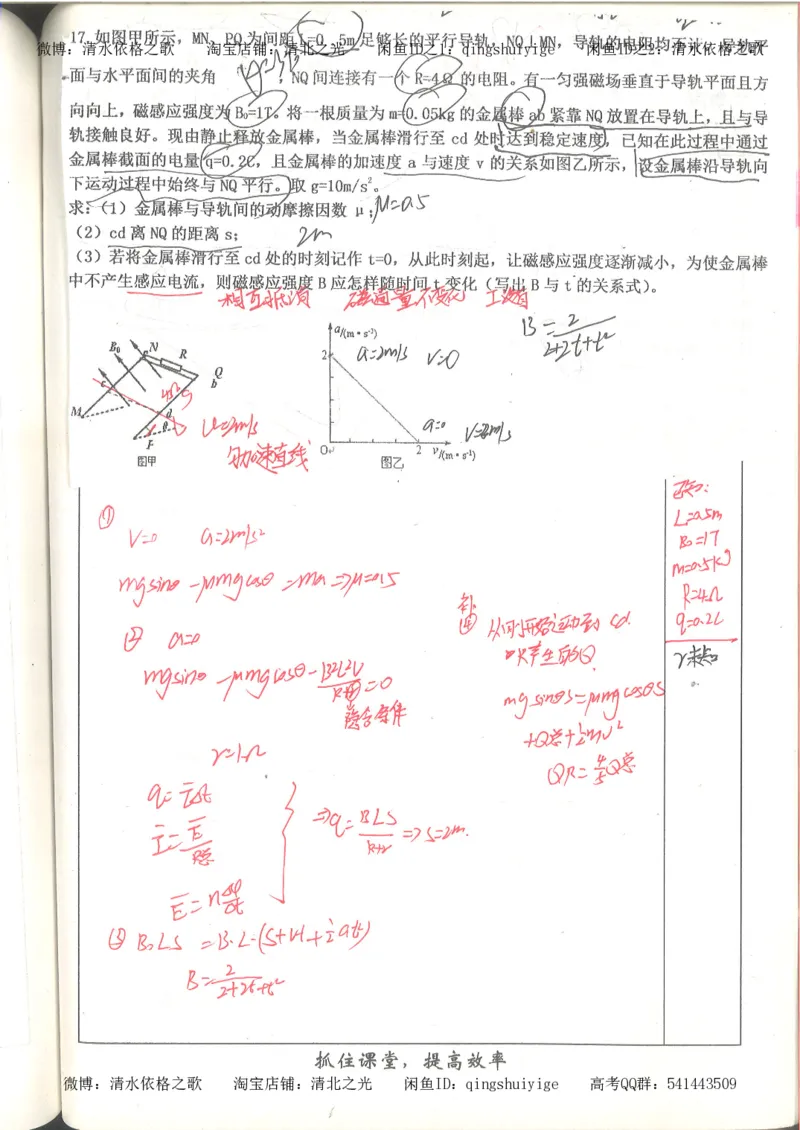 17. 如图甲所示，MN、PQ 为间距 L=0.5m 足够长的平行导轨，NQ⊥MN，导轨的电阻均不计。导轨平
微博：清水依格之歌 淘宝店铺：清北之光 闲鱼ID之1：qingshuiyige 闲鱼ID之2：清水依格之歌
面与水平面间的夹角 ，NQ 间连接有一个 R=4Ω 的电阻。有一匀强磁场垂直于导轨平面且方
向向上，磁感应强度为 B₀=1T。将一根质量为 m=0.05kg 的金属棒 ab 紧靠 NQ 放置在导轨上，且与导
轨接触良好。现由静止释放金属棒，当金属棒滑行至 cd 处时达到稳定速度，已知在此过程中通过
金属棒截面的电量 q=0.2C，且金属棒的加速度 a 与速度 v 的关系如图乙所示，设金属棒沿导轨向
下运动过程中始终与 NQ 平行。取 g=10m/s²。
求：（1）金属棒与导轨间的动摩擦因数 μ； μ=0.5
（2）cd 离 NQ 的距离 s； 2m
（3）若将金属棒滑行至 cd 处的时刻记作 t=0，从此时刻起，让磁感应强度逐渐减小，为使金属棒
中不产生感应电流，则磁感应强度 B 应怎样随时间 t 变化（写出 B 与 t 的关系式）。
相互抵消 磁通量不变化
B=2/(2+2t+t²)
a/(m·s⁻²)
2 a=2m/s v=0
B₀ N R Q b
c 4Ω
M d θ F
v=2m/s
a=0 v=2m/s
O 2 v/(m·s⁻¹)
匀加速直线
图甲 图乙
① v=0 a=2m/s²
mgsinθ-μmgcosθ=ma⇒μ=0.5
② a=0
mgsinθ-μmgcosθ-B²L²v/R总=0
r=1Ω
q=I̅Δt
I̅=E̅/R总
E̅=nΔφ/Δt
⇒q=BLS/(R+r)⇒S=2m.
③ B₀LS=B·L·(S+vt+½at²)
B=2/(2+2t+t²)
补④ 从刚开始运动到cd.
R产生的Q
mgsinθS=μmgcosθS
+Q总+½mv²
QR=4/5Q总
已知：
L=0.5m
B₀=1T
m=0.5kg
R=4Ω
q=0.2C
r未知
抓住课堂，提高效率
微博：清水依格之歌 淘宝店铺：清北之光 闲鱼ID：qingshuiyige 高考QQ群：541443509